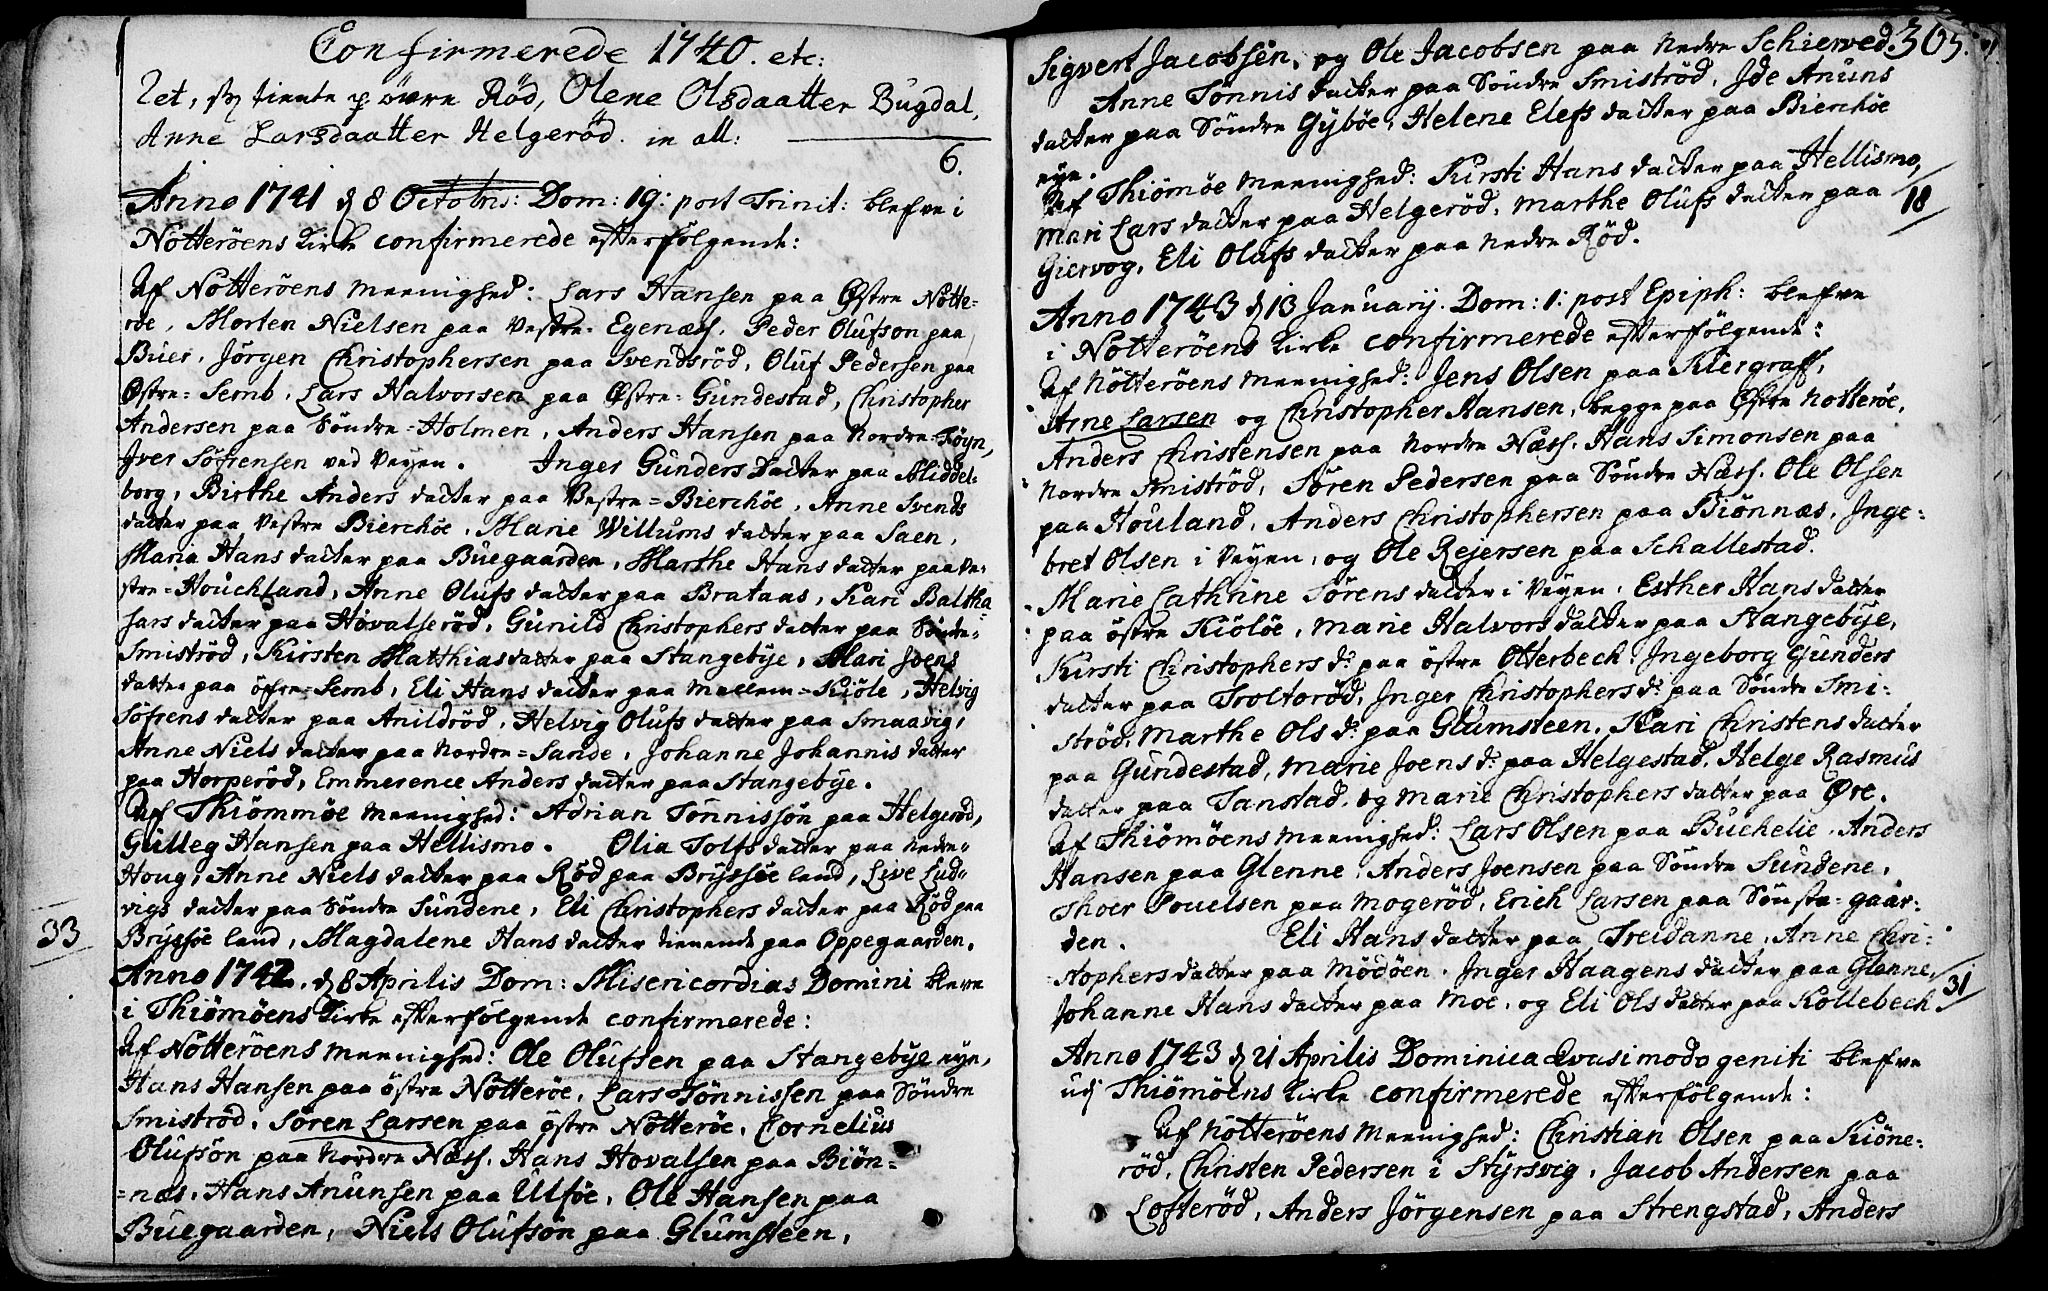 Confirmerede 1740. etc:
Zet, tiente p övre Röd, Olene Olsdaatter Bugdal,
Anne Larsdaatter Helgeröd. in all:
6.
Anno 1741 d 8 Octobris: Dom: 19: post Trinit: blefve i
Nötteröens Kirke confirmerede efterfölgende:
Af Nötteröens Meenighed: Lars Hansen paa Østre Nötte=
röe, Morten Nielsen paa Vestre=Egenæss. Peder Olufsön paa
Buer, Jörgen Christophersen paa Svendsröd, Oluf Pedersen paa
Østre=Semb, Lars Halvorsen paa Østre=Gundestad, Christopher
Andersen paa Söndre=Holmen, Anders Hansen paa Nordre=Töyn,
Iver Söfrensen ved Veyen. Inger Gunders Datter paa Middel=
borg, Birthe Anders datter paa Vestre=Bierchöe, Anne Svends
datter paa Vestre Bierchöe, Marie Willums datter paa Saen,
Maria Hans datter paa Buegaarden, Marthe Hans datter paa Ve=
stre=Houchland, Anne Olufs datter paa Brataas, Kari Baltha=
sars datter paa Hovalseröd, Gunild Christophers datter paa Söndre=
Smiströd, Kirsten Matthiasdatter paa Stangebye, Mari Joens
datter paa öfre=Semb, Eli Hans datter paa Mellem=Kiöle, Helvig
Söfrens datter paa Anildröd, Helvig Olufs datter paa Smaavig,
Anne Niels datter paa Nordre=Sande, Johanne Johannis datter
paa Horperöd, Emmerence Anders datter paa Stangebye.
Af Thiömmöe Meenighed: Adrian Tönnissön paa Helgeröd,
Gulleg Hansen paa Hellismo. Olia Tolfs datter paa nedre=
Houg, Anne Niels datter paa Röd paa Bryssöe land, Live Lud=
vigs datter paa Söndre Sundene, Eli Christophers datter paa Röd paa
33
Bryssöe land, Magdalene Hans datter tienende paa Oppegaarden.
Anno 1742. d 8 Aprilis Dom: Misericordias Domini bleve
i Thiömöens Kirke efterfölgende confirmerede:
Af Nötteröens Meenighed: Ole Olufsen paa Stangebye eye,
Hans Hansen paa östre Nötteröe, Lars Tönnissen paa Söndre
Smiströd, Sören Larsen paa östre Nötteröe, Cornelius
Olufsön paa Nordre Næss. Hans Hovalsen paa Biön=
=næs, Hans Anunsen paa Ulföe, Ole Hansen paa
Buegaarden, Niels Olufsön paa Glumsteen,
365.
Sigvert Jacobsen, og Ole Jacobsen paa Nedre Schierved.
Anne Tönnis datter paa Söndre Smiströd, Ide Anuns
datter paa Söndre Gyböe, Helene Elefs datter paa Bierchöe
eye.
Af Thiömöe Meenighed: Kirsti Hans datter paa Hellismo,
Mari Lars datter paa Helgeröd, Marthe Olufs datter paa
18
Giervog, Eli Olufs datter paa nedre Röd.
Anno 1743 d 13 Januarij. Dom: 1: post Epiph: blefve
i Nötteröens Kirke confirmerede efterfölgende:
Af Nötteröens Meenighed: Jens Olsen paa Kiergraff,
Arne Larsen og Christopher Hansen, begge paa Østre Nötteröe,
Anders Christensen paa Nordre Næss. Hans Simonsen paa
Nordre Smiströd, Sören Pedersen paa Söndre Næss. Ole Olsen
paa Houland, Anders Christophersen paa Biönnæs, Inge=
bret Olsen i Veyen, og Ole Rejersen paa Schallestad.
Marie Cathrine Sörens datter i Veyen, Esther Hans datter
paa östre Kiölöe, Marie Halvors datter paa Stangebye,
Kirsti Christophers d. paa östre Otterbech. Ingeborg Gunders
datter paa Troltoröd, Inger Christophers d. paa Söndre Smi=
ströd, Marthe Ols d. paa Glumsteen, Kari Christens datter
paa Gundestad, Marie Joens d. paa Helgestad, Helge Rasmus
datter paa Tanstad, og Marie Christophers datter paa Øre.
Af Thiömöens Meenighed: Lars Olsen paa Buchelie. Anders
Hansen paa Glenne. Anders Joensen paa Söndre Sundene,
Thoer Pouelsen paa Mogeröd, Erich Larsen paa Sönste=gaar=
den. Eli Hans datter paa Treidanne, Anne Chri=
stophers datter paa Mödöen. Inger Haagens datter paa Glenne,
Johanne Hans datter paa Moe, og Eli Ols datter paa Kollebech.
31
Anno 1743 d 21 Aprilis Dominica Qvasimodogeniti blefve
udj Thiömöens Kirke confirmerede efterfölgende:
Af Nötteröens Meenighed: Christian Olsen paa Kiöne=
röd, Christen Pedersen i Styrsvig, Jacob Andersen paa
Lofteröd, Anders Jörgensen paa Strengstad, Anders